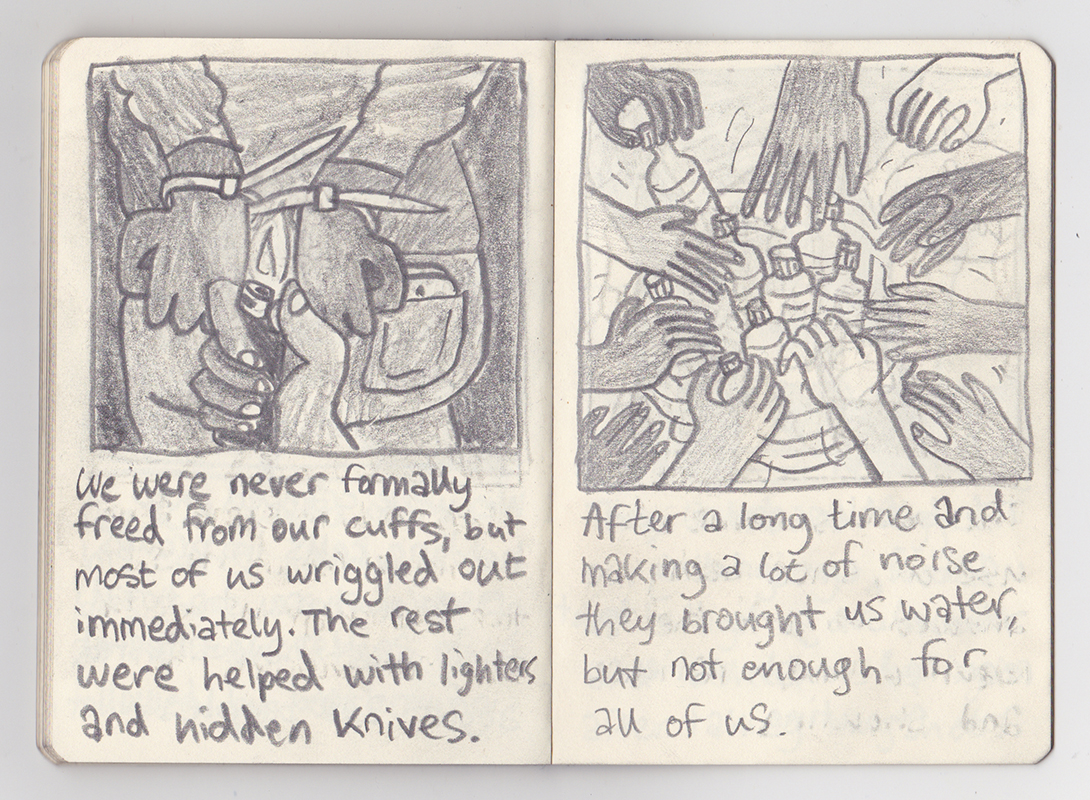 We were never formally
freed from our cuffs, but
most of us wriggled out
immediately. The rest
were helped with lighters
and hidden knives.
After a long time and
making a lot of noise
they brought us water,
but not enough for
all of us.